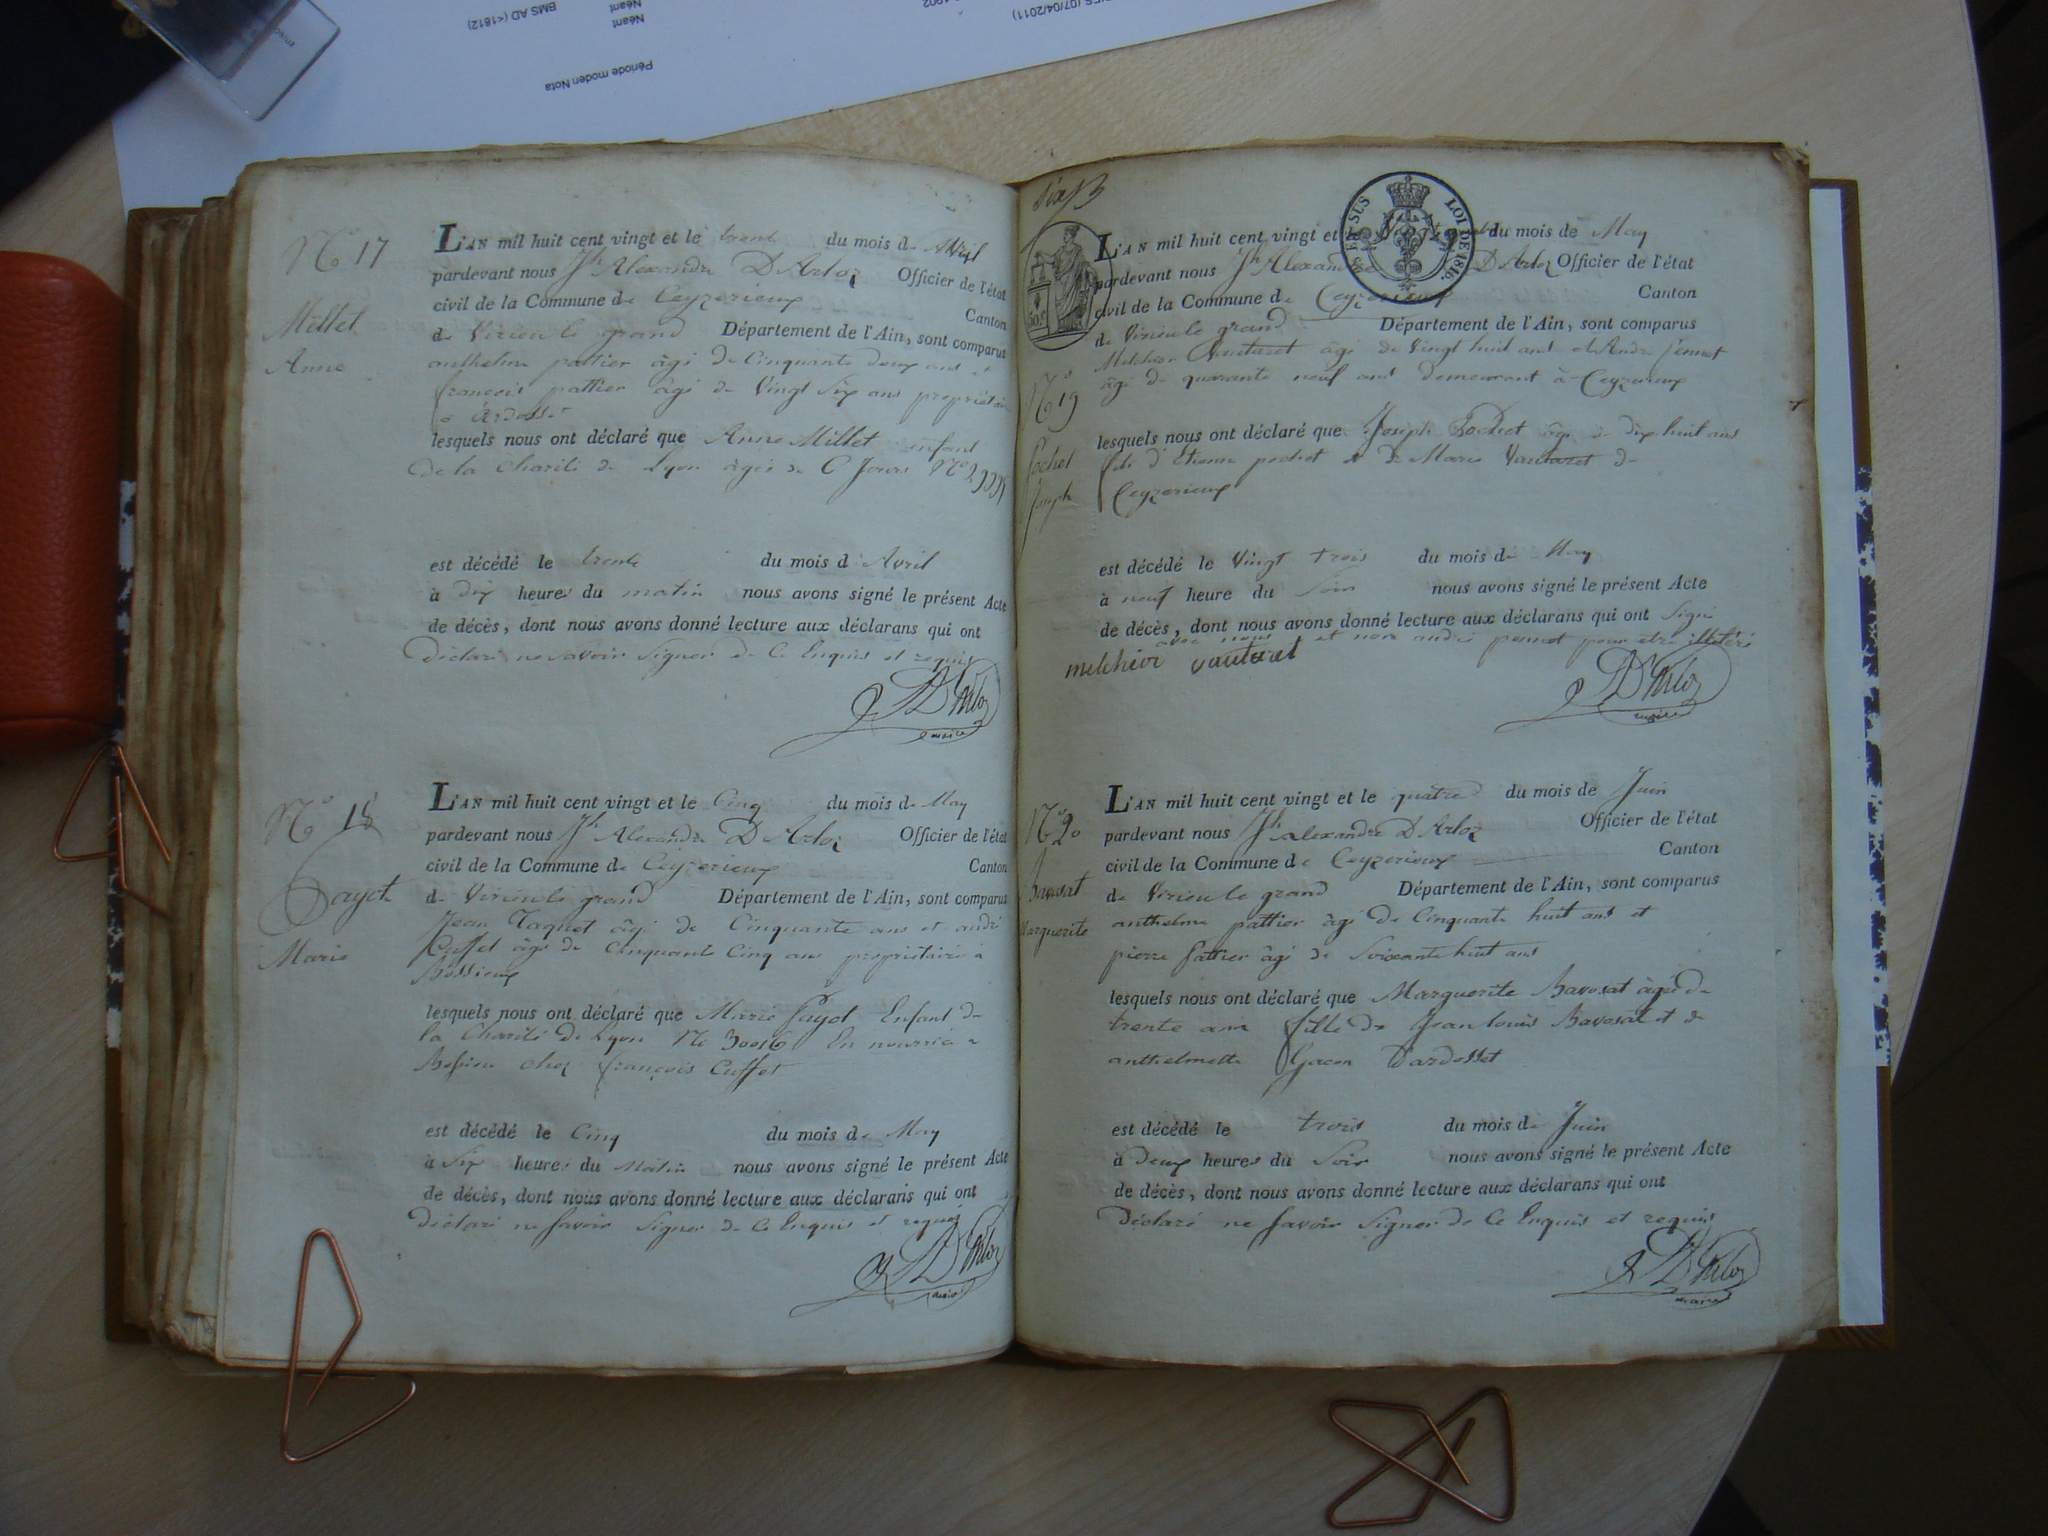 BMS AD (<1812)
Néant
Néant
Période moden Nota
1902
(07/04/2011)
N.º 17
Millet
Anne
L'AN mil huit cent vingt et le trente du mois de Avril
pardevant nous Jh Alexandre D'Arloz Officier de l'état
civil de la Commune de Ceyzerieux Canton
de Virieu le grand Département de l'Ain, sont comparus
anthelme pattier âgé de Cinquante deux ans et
françois pattier âgé de Vingt Six ans propriétaire
a Ardosset
lesquels nous ont déclaré que Anne Millet enfant
de la Charité de Lyon âgée de 6 Jours Nº
est décédé le trente du mois d'Avril
à dix heures du matin nous avons signé le présent Acte
de décès, dont nous avons donné lecture aux déclarans qui ont
Déclaré ne savoir Signer de Ce Enquis et requis
J D'Arloz
maire
N.º 18
Payot
Marie
L'AN mil huit cent vingt et le Cinq du mois de May
pardevant nous Jh Alexandre D'Arloz Officier de l'état
civil de la Commune de Ceyzerieux Canton
de Virieu le grand Département de l'Ain, sont comparus
Jean Taquet âgé de Cinquante ans et andré
Cuffet âgé de Cinquante Cinq ans propriétaire à
Bossieux
lesquels nous ont déclaré que Marie Payot Enfant de
la Charité de Lyon Nº 30016 En nourrice a
chez françois Cuffet
est décédé le Cinq du mois de May
à Six heures du Matin nous avons signé le présent Acte
de décès, dont nous avons donné lecture aux déclarans qui ont
Déclaré ne Savoir Signer de Ce Enquis et requis
J D'Arloz
maire
Six
LOI DE 1816.
50 c
L'AN mil huit cent vingt et le du mois de May
pardevant nous Jh Alexandre D'Arloz Officier de l'état
civil de la Commune de Ceyzerieux Canton
de Virieu le grand Département de l'Ain, sont comparus
Melchior Vautaret âgé de Vingt huit ans et André pennet
âgé de quarante neuf ans demeurant à Ceyzerieux
Nº 19
Pochet
Joseph
lesquels nous ont déclaré que Joseph Pochet âgé de dix huit ans
fils d'Etienne pochet et de Marie Vautaret de
Ceyzerieux
est décédé le Vingt trois du mois de May
à neuf heure du Soir nous avons signé le présent Acte
de décès, dont nous avons donné lecture aux déclarans qui ont Signé
avec nous et non andré pennet pour etre illetéré
melchior vautaret
J D'Arloz
maire
Nº 20
Bavosat
Marguerite
L'AN mil huit cent vingt et le quatre du mois de Juin
pardevant nous Jh Alexandre D'Arloz Officier de l'état
civil de la Commune de Ceyzerieux Canton
de Virieu le grand Département de l'Ain, sont comparus
anthelme pattier âgé de Cinquante huit ans et
pierre pattier âgé de Soixante huit ans
lesquels nous ont déclaré que Marguerite Bavosat âgée de
trente ans fille de Jean louis Bavosat et de
anthelmette Gacon D'ardosset
est décédé le trois du mois de Juin
à Deux heures du Soir nous avons signé le présent Acte
de décès, dont nous avons donné lecture aux déclarans qui ont
Déclaré ne Savoir Signer de Ce Enquis et requis
J D'Arloz
maire